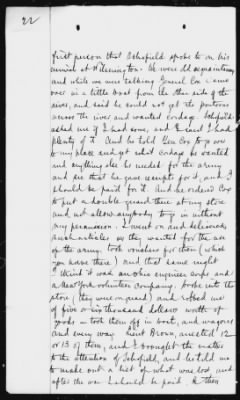 22
first person that Schofield spoke to on his
arrival at Wilmington. We were old acquaintances
and while we were talking General Cox came
over in a little boat from the other side of the
river, and said he could not get the pontoons
across the river and wanted cordage. Schofield
asked me if I had some, and I said I had
plenty of it. And he told Gen Cox to go over
to my place and get what cordage he wanted
and anything else he needed for the army
and see that he gave receipts for it, and I
should be paid for it. And he ordered Cox
to put a double guard there at my store
and not allow anybody to go in without
my permission. I went on and delivered
such articles as they wanted for the use
of the army, took vouchers for them (which
you have there) and that same night
I think it was an Ohio engineer corps and
a New York volunteer company, broke into the
store (they were on guard) and robbed me
of five or six thousand dollars worth of
goods — took them off in boats, and wagons
and every way. Lieut Brown, arrested 12
or 13 of them, and I brought the matter
to the attention of Schofield, and he told me
to make out a list of what was lost and
after the war I should be paid. & then